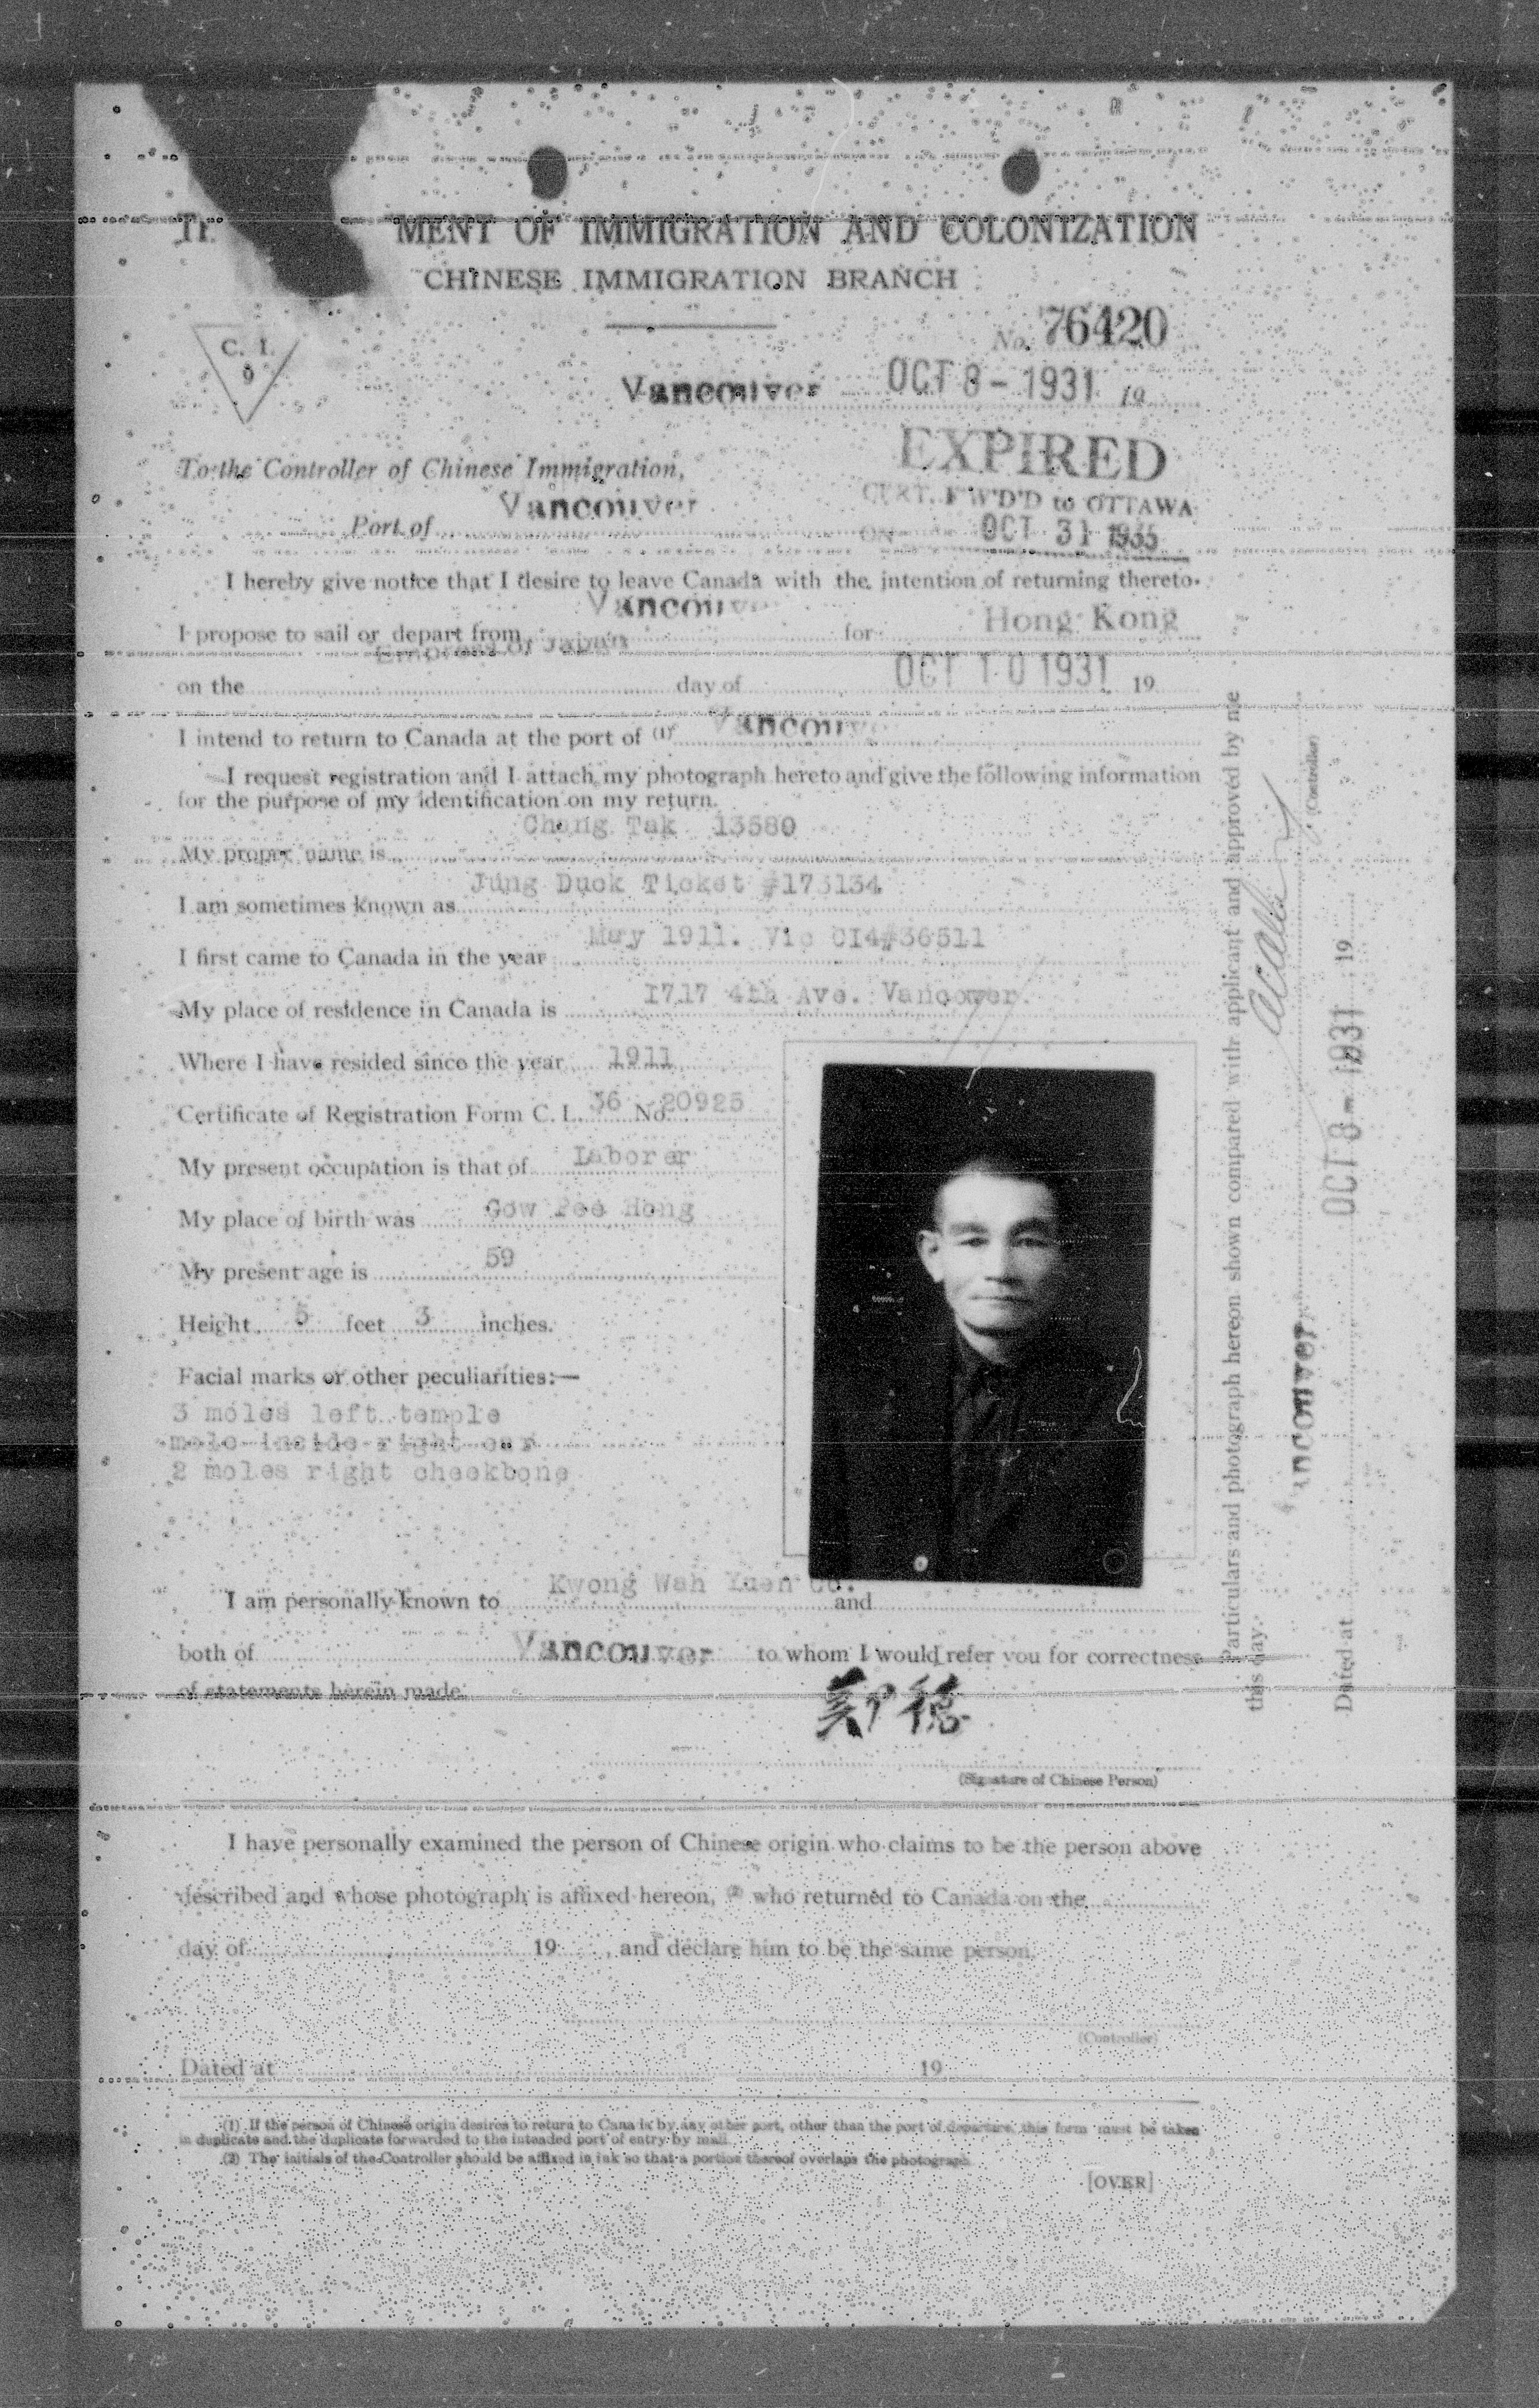 MENT OF IMMIGRATION AND COLONIZATION
CHINESE IMMIGRATION BRANCH
C. I.
9
No. 76420
Vancouver OCT 8 - 1931 19
EXPIRED
To the Controller of Chinese Immigration,
CERT. F'W'D'D to OTTAWA
Port of Vancouver
ON OCT 31 1935
I hereby give notice that I desire to leave Canada with the intention of returning thereto.
I propose to sail or depart from Vancouver for Hong Kong
Empress of Japan
on the day of OCT 10 1931 19
I intend to return to Canada at the port of (1) Vancouver
I request registration and I attach my photograph hereto and give the following information
for the purpose of my identification on my return.
My proper name is Chang Tak 13580
I am sometimes known as Jung Duck Ticket #173134
I first came to Canada in the year May 1911. Vic CI4#36511
My place of residence in Canada is 1717 4th Ave. Vancouver.
Where I have resided since the year 1911
Certificate of Registration Form C. I. 36 No. 20925
My present occupation is that of Laborer
My place of birth was Gow Pee Hong
My present age is 59
Height 5 feet 3 inches.
Facial marks or other peculiarities:—
3 moles left temple
mole inside right ear
2 moles right cheekbone
I am personally known to Kwong Wah Yuen Co. and
both of Vancouver to whom I would refer you for correctness
of statements herein made.
鄭德
(Signature of Chinese Person)
I have personally examined the person of Chinese origin who claims to be the person above
described and whose photograph is affixed hereon, (2) who returned to Canada on the
day of 19 , and declare him to be the same person.
(Controller)
Dated at 19
(1) If the person of Chinese origin desires to return to Canada by any other port, other than the port of departure, this form must be taken
in duplicate and the duplicate forwarded to the intended port of entry by mail.
(2) The initials of the Controller should be affixed in ink so that a portion thereof overlaps the photograph.
[OVER]
Particulars and photograph hereon shown compared with applicant and approved by me
this day.
(Controller)
Vancouver
Dated at OCT 8 - 1931 19